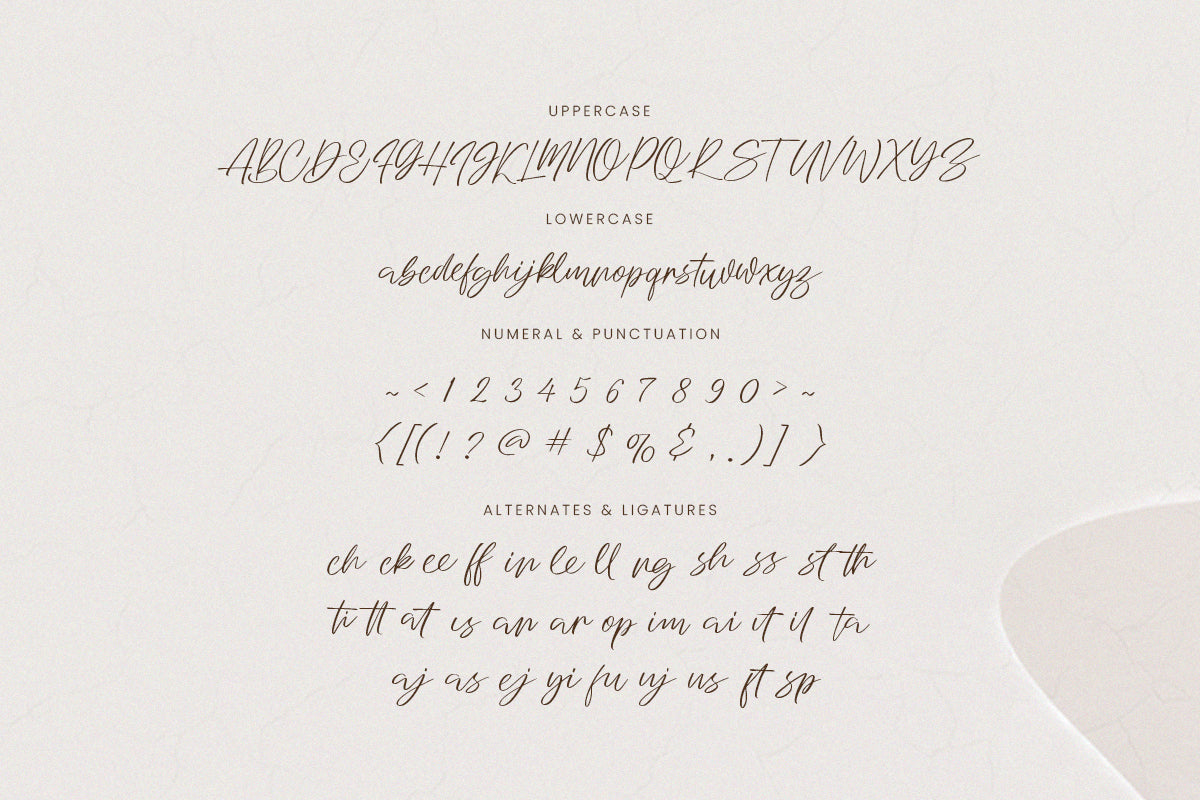 UPPERCASE
ABCDEFGHIJKLMNOPQRSTUVWXYZ
LOWERCASE
abcdefghijklmnopqrstuvwxyz
NUMERAL & PUNCTUATION
~ < 1 2 3 4 5 6 7 8 9 0 > ~
{ [ ( ! ? @ # $ % & , . ) ] }
ALTERNATES & LIGATURES
ch ck ee ff in le ll ng sh ss st th
ti tt at is an ar op im ai it il ta
aj as ej yi fu uj us ft sp